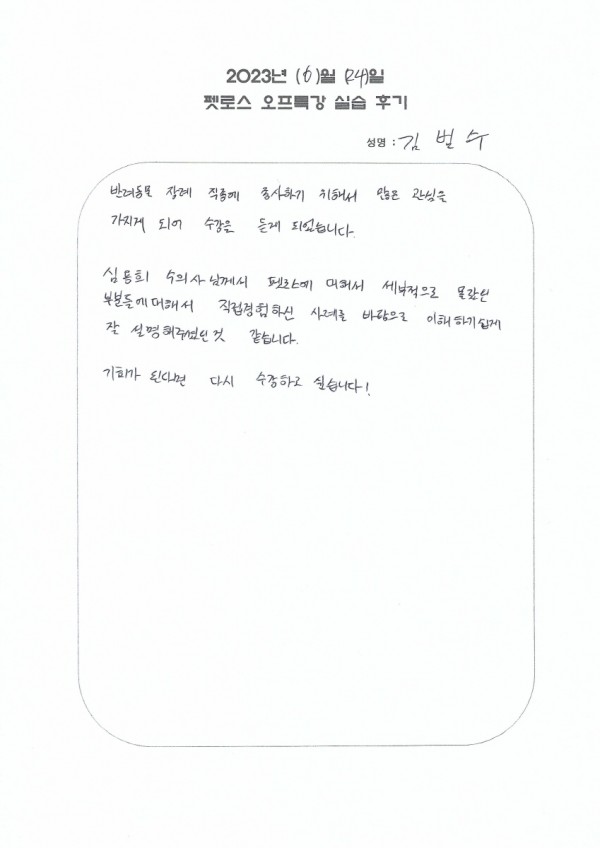 2023년 (6)월 (24)일
펫로스 오프특강 실습 후기
성명 : 김 범 수
반려동물 장례 직종에 종사하기 위해서 많은 관심을
가지게 되어 수강을 듣게 되었습니다.
심용희 수의사님께서 펫로스에 대해서 세부적으로 몰랐던
부분들에대해서 직접경험하신 사례를 바탕으로 이해하기쉽게
잘 설명해주셨던것 같습니다.
기회가 된다면 다시 수강하고 싶습니다!